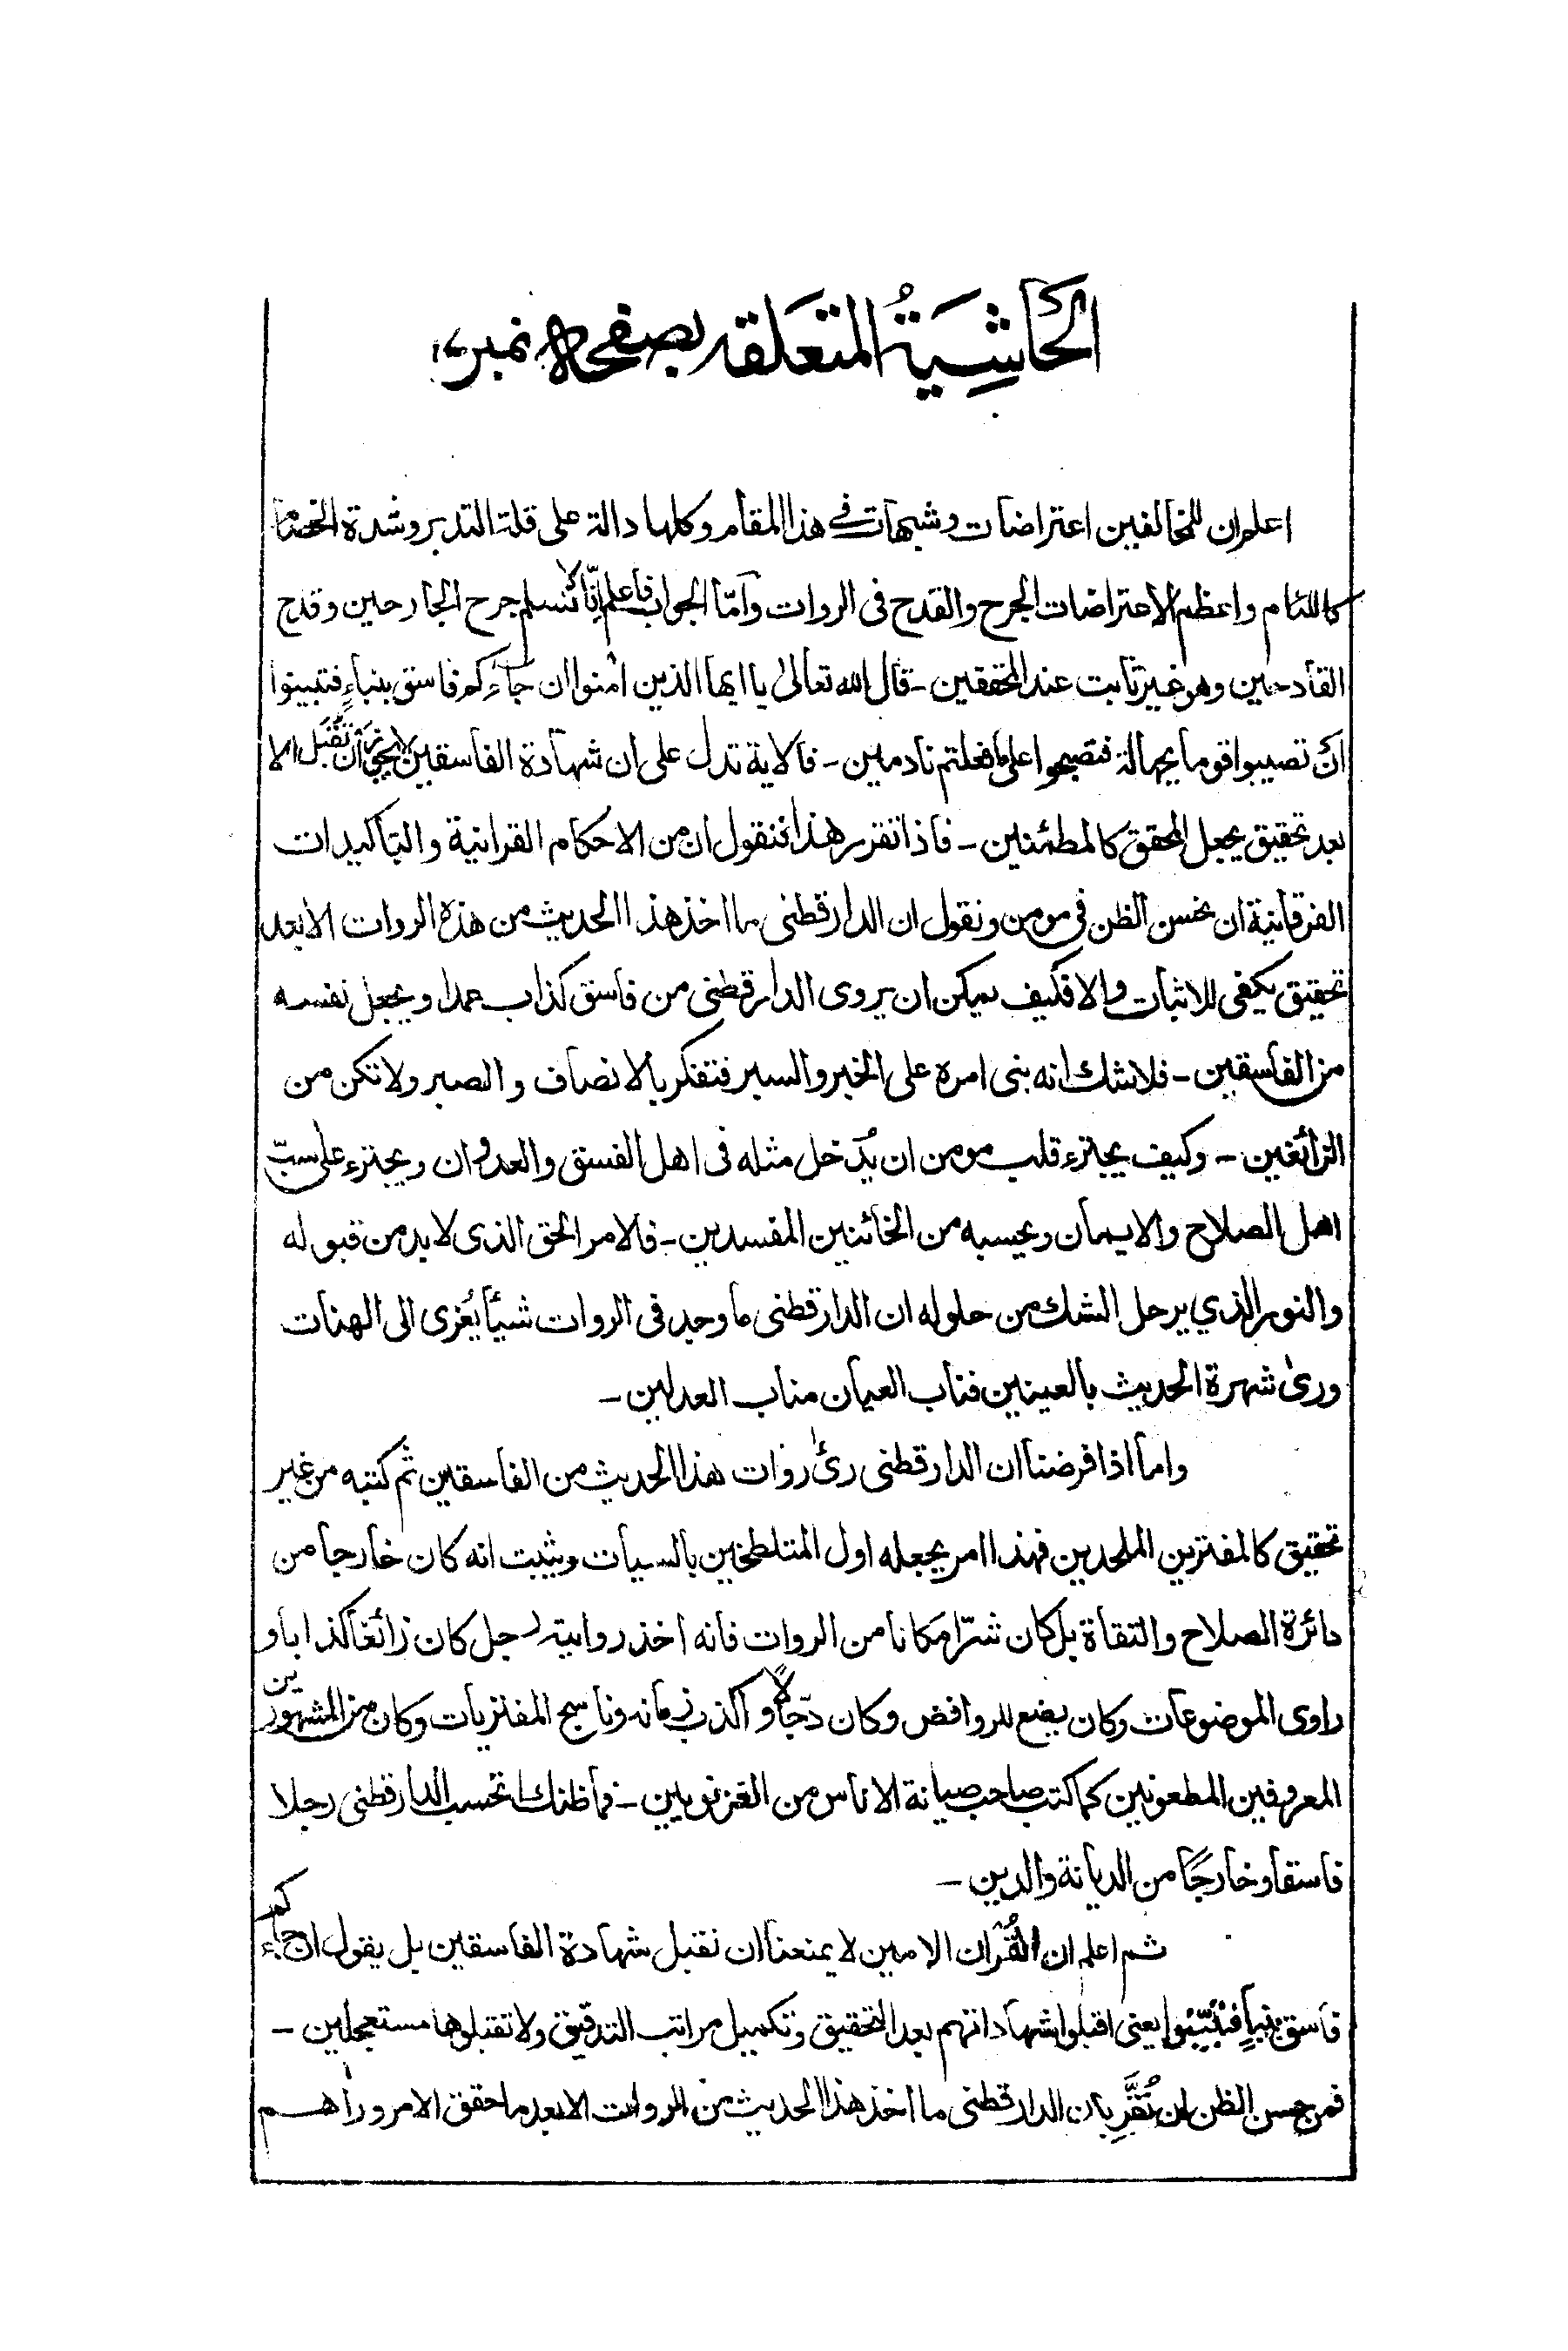 الحَاشِيَةُ المتعَلقه بصفحه نمبر ۱۷
اعلم ان للمخالفین اعتراضات وشبهات فی هذا المقام وکلها دالة علی قلة التدبر وشدة الخصام
کاللئام واعظم الاعتراضات الجرح والقدح فی الروات وامّا الجواب فاعلم انّا لا نسلم جرح الجارحین وقدح
القادحین وهو غیر ثابت عند المحققین۔ قال الله تعالیٰ یا ایها الذین اٰمنوا ان جاءَکم فاسق بنباءٍ فتبینوا
انْ تصیبوا قوما بجهالة فتصبحوا علی ما فعلتم نادمین۔ فالایة تدل علی ان شهادة الفاسقین لا یجوز اَن تُقْبَل الا
بعد تحقیق یجعل المحقق کالمطمئنین۔ فاذا تقرر هذا فنقول ان من الاحکام القرانیة والتاکیدات
الفرقانیة ان نحسن الظن فی مومن ونقول ان الدارقطنی ما اخذ هذا الحدیث من هذه الروات الا بعد
تحقیق یکفی للاثبات والا فکیف یمکن ان یروی الدارقطنی من فاسق کذاب عمدا ویجعل نفسه
من الفاسقین۔ فلا شك انه بنی امره علی الخیر والسبر فتفکر بالانصاف والصبر ولا تکن من
الزائغین۔ وکیف یجترء قلب مومن ان یُدخل مثله فی اهل الفسق والعدوان ویجترء علی سبّ
اهل الصلاح والایمان ویحسبه من الخائنین المفسدین۔ فالامر الحق الذی لا بد من قبوله
والنور الذی یرحل الشك من حلوله ان الدارقطنی ما وجد فی الروات شیئًا یُعزی الی الهنات
وریٰ شهرة الحدیث بالعینین فناب العیان مناب العدلین۔
واما اذا فرضنا ان الدارقطنی ریٰ روات هذا الحدیث من الفاسقین ثم کتبه من غیر
تحقیق کالمفترین الملحدین فهذا امر یجعله اول المتلطخین بالسیات ویثبت انه کان خارجا من
دائرة الصلاح والتقاة بل کان شرّا مکانا من الروات فانه اخذ روایة رجل کان زائغا کذابا و
راوی الموضوعات وکان یضع للروافض وکان دجّالًا و اکذب زمانه وناسج المفتریات وکان من المشهورین
المعروفین المطعونین کما کتب صاحب صیانة الاناس من الغزنویین۔ فما ظنك اتحسب الدارقطنی رجلا
فاسقا وخارجًا من الدیانة والدین۔
ثم اعلم ان القُرآن الامین لا یمنعنا ان نقبل شهادة الفاسقین بل یقول ان جاءکم
فاسق بنباءٍ فَتَبَیَّنُوا یعنی اقبلوا شهاداتهم بعد التحقیق وتکمیل مراتب التدقیق ولا تقبلوها مستعجلین۔
فمن حسن الظن ان نُقِرّ بان الدارقطنی ما اخذ هذا الحدیث من الروات الا بعد ما حقق الامر وراهم